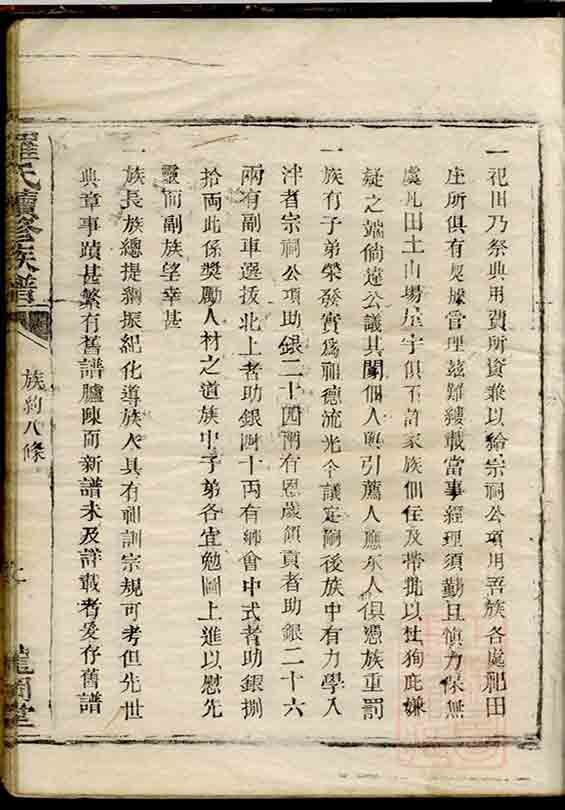 一祀田乃祭典用費所資兼以給宗祠公項用吾族各處祀田
庄所俱有憑據管理玆難縷載當事經理須勤且慎力保無
虞凡田土山塲屋宇俱不許家族佃住及帶批以杜狥庇嫌
疑之端倘違公議其闔佃人與引薦人應永人俱憑族重罰
一族有子弟榮發實爲祖德流光今議定嗣後族中有力學入
泮者宗祠公項助銀二十四兩有恩歲領貢者助銀二十六
兩有副車選拔北上者助銀四十兩有鄉會中式者助銀捌
拾兩此係獎勵人材之道族中子弟各宜勉圖上進以慰先
靈而副族望幸甚
一族長族總提綱振紀化導族人具有祖訓宗規可考但先世
典章事蹟甚繁有舊譜臚陳而新譜未及詳載者爰存舊譜
羅氏續修族譜
族約八條